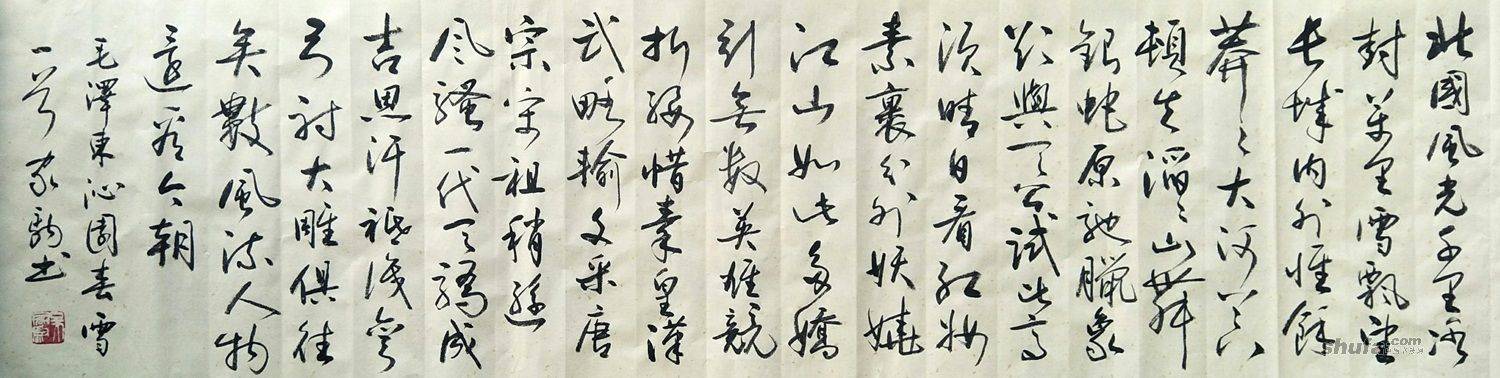 北國風光千里冰
封万里雪飄望
长城内外惟餘
莽〻大河上下
頓失滔〻山舞
銀蛇原馳臘象
欲與天公試比高
須晴日看红妝
素裹分外妖嬈
江山如此多嬌
引无数英雄競
折腰惜秦皇漢
武略輸文采唐
宗宋祖稍遜
风騷一代天驕成
吉思汗祗识弯
弓射大雕俱往
矣數風流人物
還看今朝
毛澤東沁園春雪
书
shufa.com